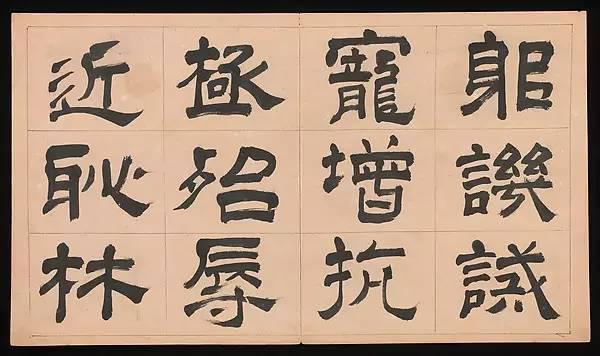 躳譏誡
寵增抗
極殆辱
近恥林